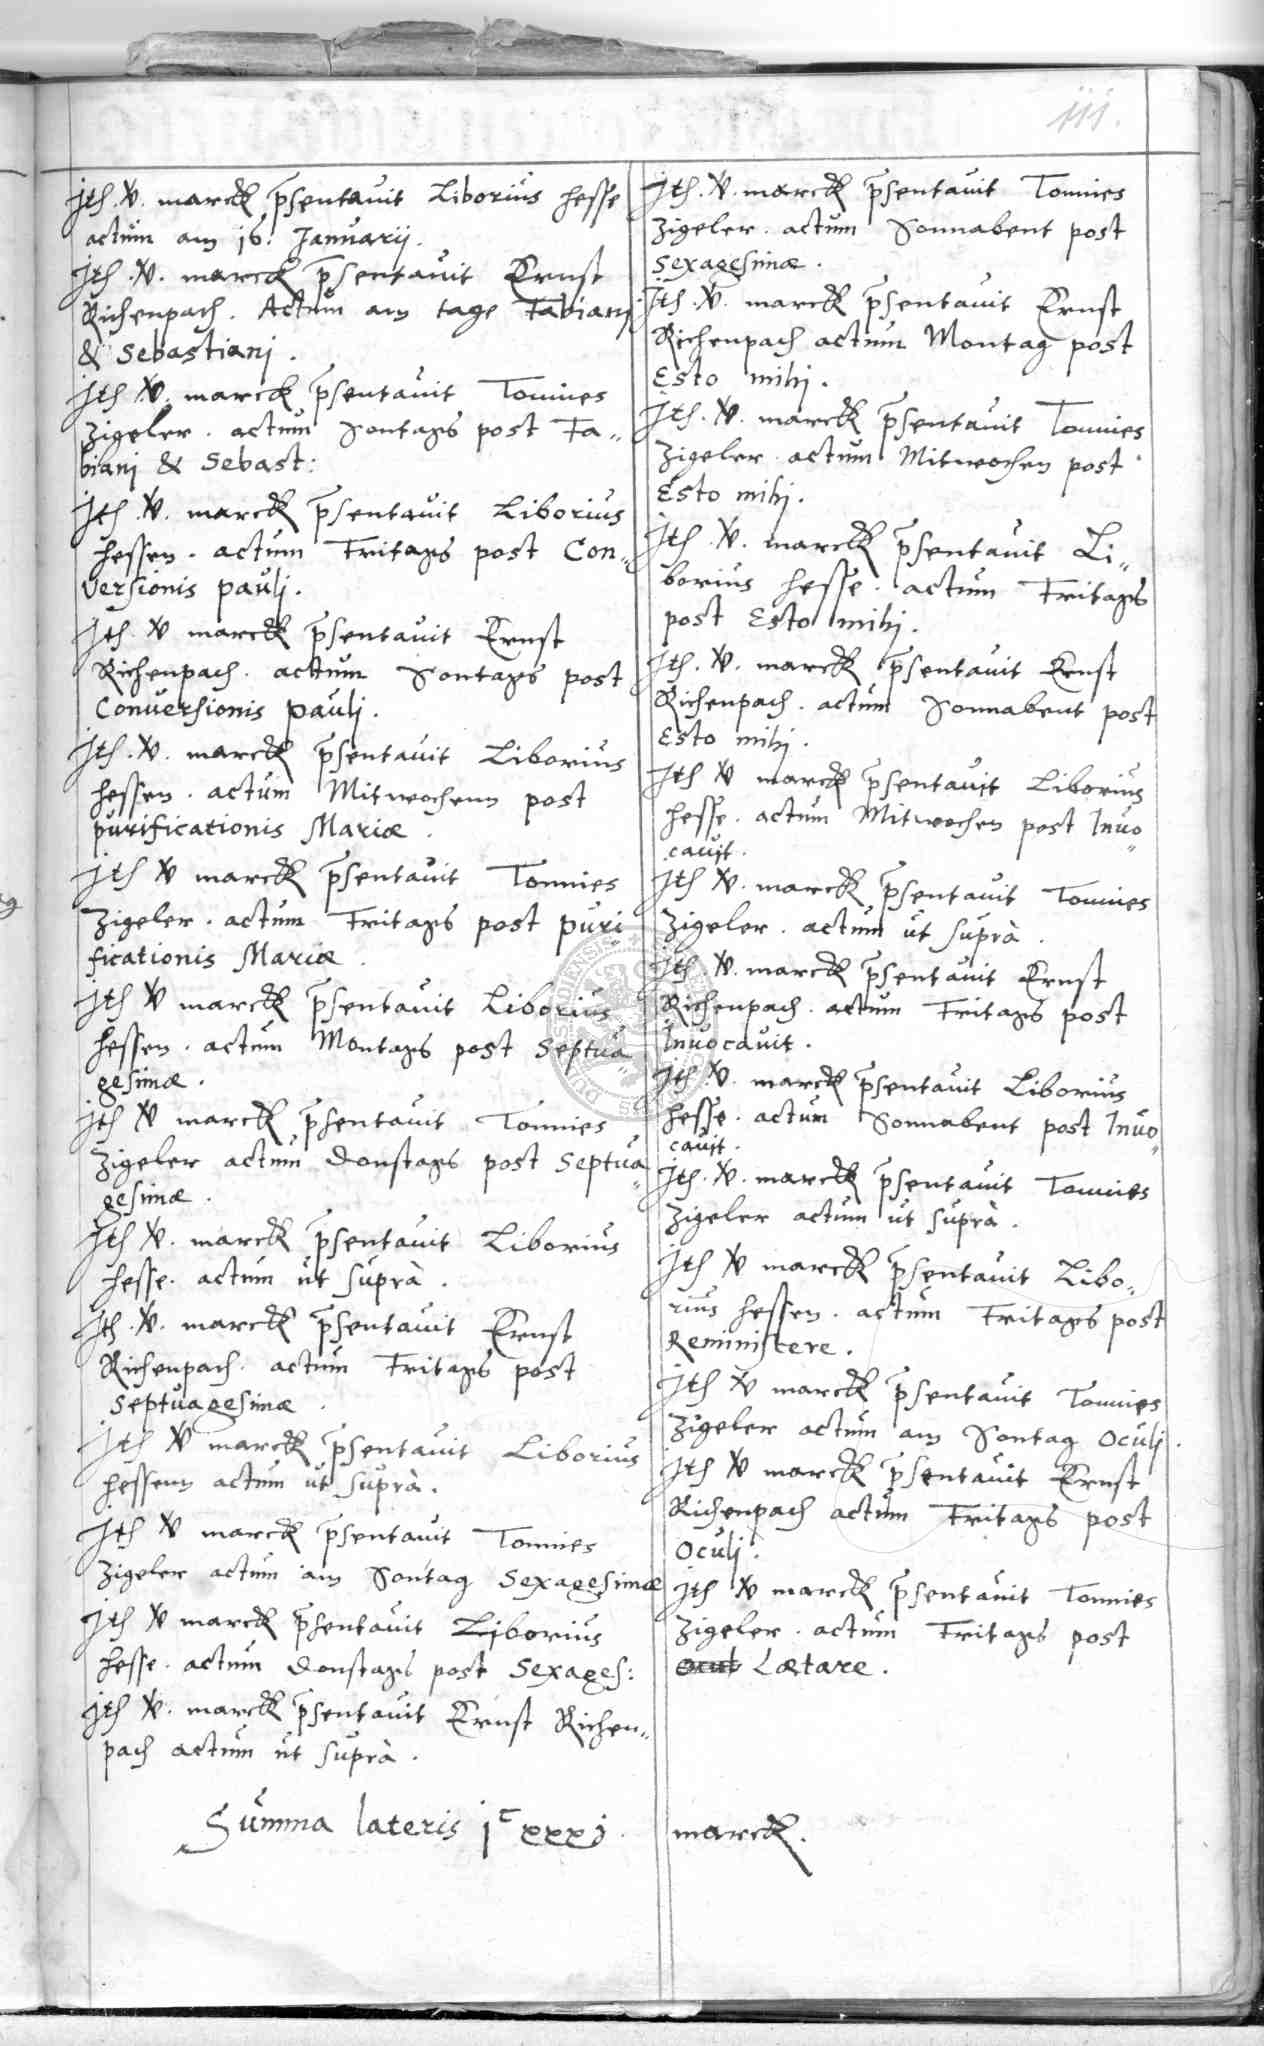 iii.
Ith .v. marck p̄sentauit Liborius Hesse
actum am 16. Januarij.
Ith .v. marck p̄sentauit Ernst
Richenpach. Actum am tage Fabianj
& Sebastianj.
Ith .v. marck p̄sentauit Tonnies
Zigeler. actum Sontags post Fa„
bianj & Sebast:
Ith .v. marck p̄sentauit Liborius
Hessen. actum Fritags post Con„
versionis paulj.
Ith. v marck p̄sentauit Ernst
Richenpach. actum Sontags post
Conuersionis paulj.
Ith .v. marck p̄sentauit Liborius
Hessen. actum Mitwochenn post
purificationis Mariæ.
Ith v marck p̄sentauit Tonnies
Zigeler. actum Fritags post puri„
ficationis Mariæ.
Ith v marck p̄sentauit Liborius
Hessen. actum Montags post Septua„
gesimæ.
Ith v marck p̄sentauit Tonnies
Zigeler actum Donstags post Septua„
gesimæ.
Ith v. marck p̄sentauit Liborius
Hesse. actum ut suprà.
Ith .v. marck p̄sentauit Ernst
Richenpach. actum Fritags post
Septuagesimæ.
Ith v marck p̄sentauit Liborius
Hessenn actum ut suprà.
Ith v marck p̄sentauit Tonnies
Zigeler actum am Sontag Sexagesimæ
Ith v marck p̄sentauit Liborius
Hesse. actum Donstags post Sexages:
Ith v. marck p̄sentauit Ernst Richen„
pach actum ut suprà.
Ith .v. marck p̄sentauit Tonnies
Zigeler. actum Sonnabent post
Sexagesimæ.
Ith .v. marck p̄sentauit Ernst
Richenpach actum Montag post
Esto mihj.
Ith .v. marck p̄sentauit Tonnies
Zigeler. actum Mitwochen post
Esto mihj.
Ith .v. marck p̄sentauit Li„
borius Hesse. actum Fritags
post Esto mihj.
Ith .v. marck p̄sentauit Ernst
Richenpach. actum Sonnabent post
Esto mihj.
Ith v marck p̄sentauit Liborius
Hesse. actum Mitwochen post Inuo„
cauit.
Ith v. marck p̄sentauit Tonnies
Zigeler. actum ut suprà.
Ith .v. marck p̄sentauit Ernst
Richenpach. actum Fritags post
Inuocauit.
Ith .v. marck p̄sentauit Liborius
Hesse. actum Sonnabent post Inuo„
cauit.
Ith .v. marck p̄sentauit Tonnies
Zigeler actum ut suprà.
Ith v marck p̄sentauit Libo„
rius Hessen. actum Fritags post
Reminiscere.
Ith v marck p̄sentauit Tonnies
Zigeler actum am Sontag Oculj.
Ith v marck p̄sentauit Ernst
Richenpach actum Fritags post
Oculj.
Ith v marck p̄sentauit Tonnies
Zigeler. actum Fritags post
Ocul Lætare.
Summa lateris jᶜ xxxj marck.